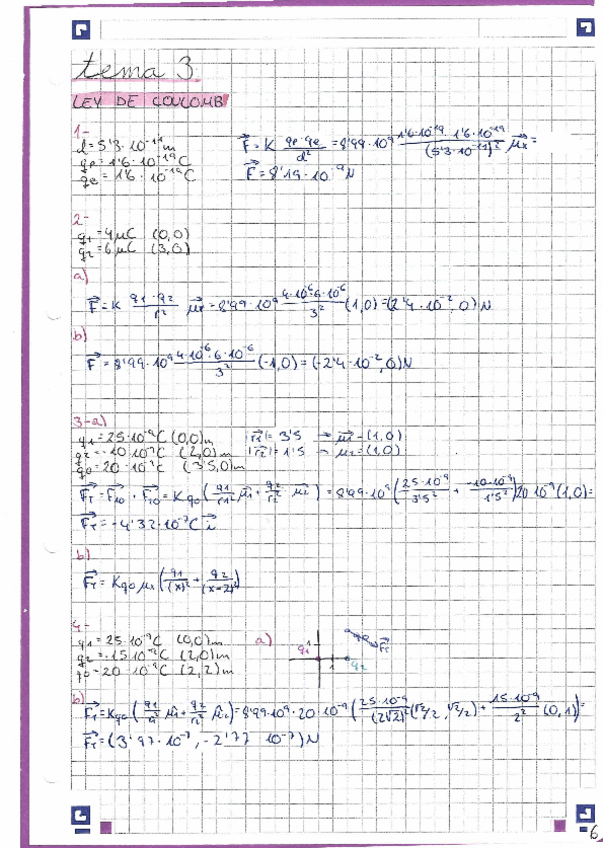 tema 3
LEY DE COULOMB
1-
d = 5'3·10⁻¹¹m
qp = 1'6·10⁻¹⁹C
qe = 1'6·10⁻¹⁹C
F⃗ = K qp·qe/d² = 8'99·10⁹ 1'6·10⁻¹⁹·1'6·10⁻¹⁹/(5'3·10⁻¹¹)² μ⃗x =
F⃗ = 8'19·10⁻⁹N
2-
q1 = 4μC (0,0)
q2 = 6μC (3,0)
a)
F⃗ = K q1·q2/r² μ⃗r = 8'99·10⁹ 4·10⁻⁶·6·10⁻⁶/3² (1,0) = (2'4·10⁻², 0) N
b)
F⃗ = 8'99·10⁹ 4·10⁻⁶·6·10⁻⁶/3² (-1,0) = (-2'4·10⁻², 0) N
3-a)
q1 = 25·10⁻⁹C (0,0)m |r⃗1| = 3'5 → μ⃗1 = (1,0)
q2 = -10·10⁻⁹C (2,0)m |r⃗2| = 1'5 → μ2 = (1,0)
q0 = 20·10⁻⁹C (3'5,0)m
F⃗T = F⃗10 · F⃗20 = Kq0 (q1/r1² μ⃗1 + q2/r2² μ⃗2) = 8'99·10⁹ (25·10⁻⁹/3'5² + -10·10⁻⁹/1'5²) 20·10⁻⁹ (1,0) =
F⃗T = -4'32·10⁻⁷C i⃗
b)
F⃗T = Kq0 μx (q1/(x)² + q2/(x-2)²)
4-
q1 = 25·10⁻⁹C (0,0)m
q2 = -15·10⁻⁹C (2,0)m
q0 = 20·10⁻⁹C (2,2)m
a)
q1
1
q0
F⃗T
q2
b)
F⃗T = Kq0 (q1/r1² μ⃗1 + q2/r2² μ⃗2) = 8'99·10⁹·20·10⁻⁹ (25·10⁻⁹/(2√2)² (√2/2, √2/2) + 15·10⁻⁹/2² (0,1)) =
F⃗T = (3'97·10⁻⁷, -2'77 10⁻⁷) N
6